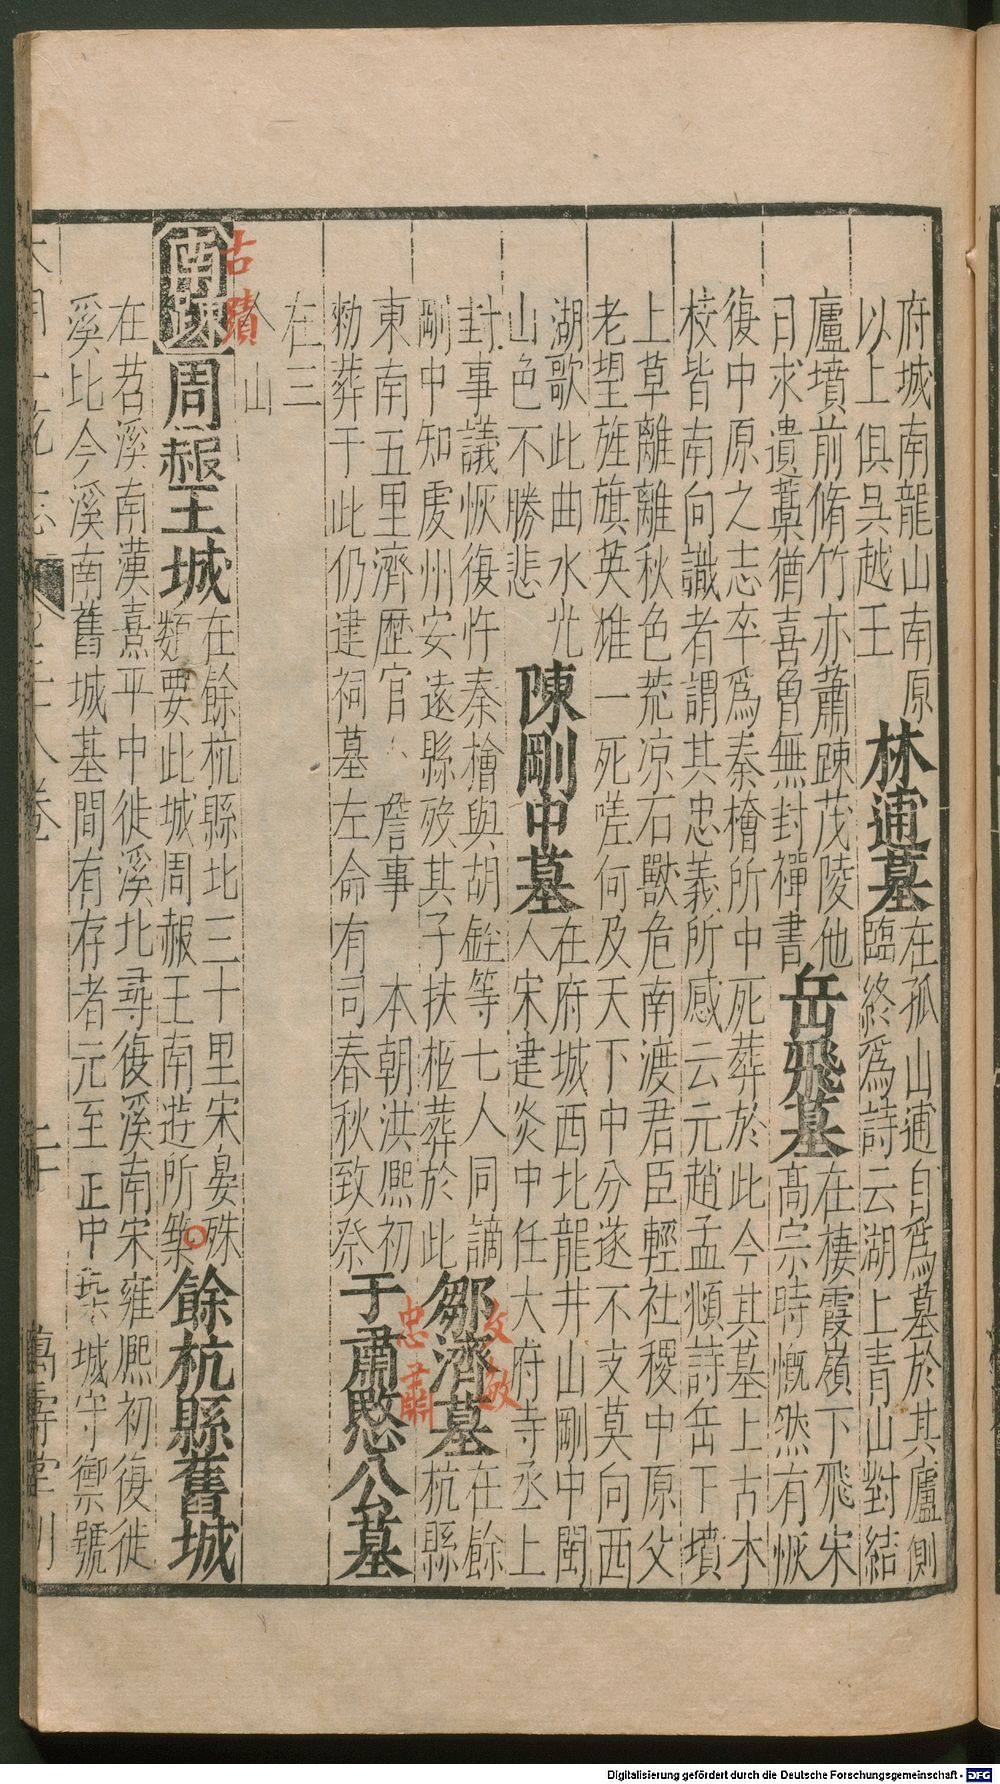 府城南龍山南原
以上俱吳越王
林逋墓
在孤山逋自爲墓於其廬側
臨終爲詩云湖上青山對結
廬墳前脩竹亦蕭踈茂陵他
日求遺藁猶喜曾無封禪書
岳飛墓
在棲霞嶺下飛宋
高宗時慨然有恢
復中原之志卒爲秦檜所中死葬於此今其墓上古木
枝皆南向識者謂其忠義所感云元趙孟頫詩岳下墳
上草離離秋色荒凉石獸危南渡君臣輕社稷中原父
老望旌旗英雄一死嗟何及天下中分遂不支莫向西
湖歌此曲水光
山色不勝悲
陳剛中墓
在府城西北龍井山剛中閩
人宋建炎中任大府寺丞上
封事議恢復忤秦檜與胡銓等七人同謫
剛中知虔州安遠縣歿其子扶柩葬於此
鄒濟墓
文敏
在餘
杭縣
東南五里濟歷官 詹事 本朝洪熙初
勑葬于此仍建祠墓左命有司春秋致祭
忠肅
于肅愍公墓
在三
山
古蹟
周赧王城
在餘杭縣北三十里宋晏殊
類要此城周赧王南遊所築
餘杭縣舊城
在苕溪南漢熹平中徙溪北尋復溪南宋雍熈初復徙
溪北今溪南舊城基間有存者元至正中築城守禦號
大明一統志 三十八卷 二十 萬壽堂刊
Digitalisierung gefördert durch die Deutsche Forschungsgemeinschaft - DFG